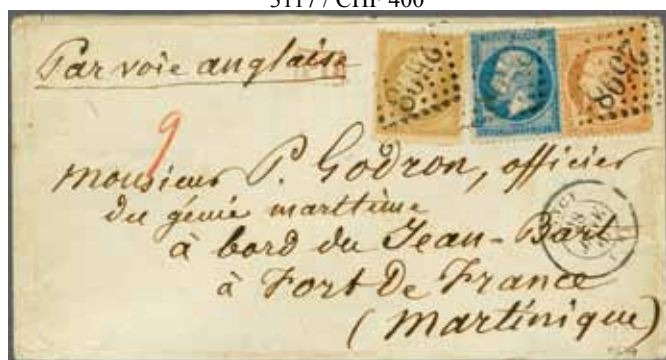 3117 / CHF 400
Par voie anglaise
2598
2598
9
Monsieur P. Godron, officier
du génie maritime
à bord du Jean-Bart
à Fort De France
(Martinique)